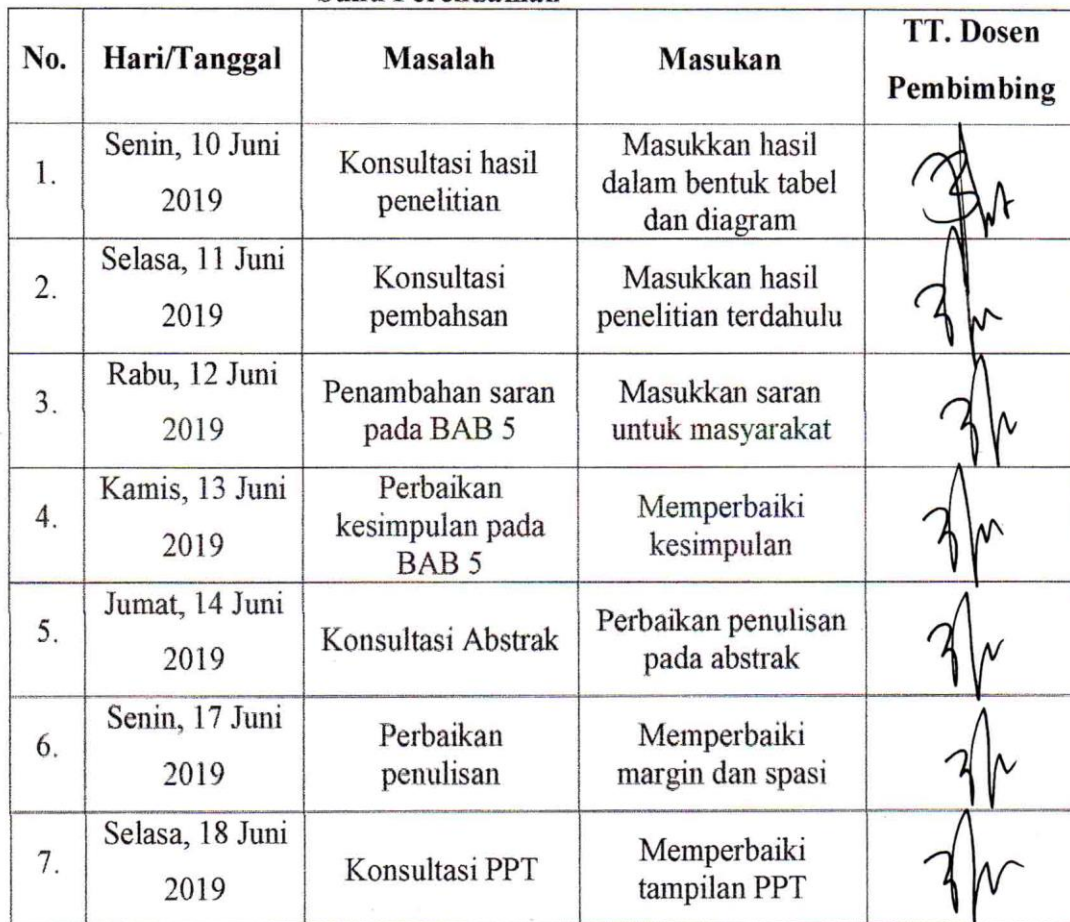 No. Hari/Tanggal Masalah Masukan TT. Dosen
Pembimbing
1. Senin, 10 Juni
2019
Konsultasi hasil
penelitian
Masukkan hasil
dalam bentuk tabel
dan diagram
2. Selasa, 11 Juni
2019
Konsultasi
pembahsan
Masukkan hasil
penelitian terdahulu
3. Rabu, 12 Juni
2019
Penambahan saran
pada BAB 5
Masukkan saran
untuk masyarakat
4. Kamis, 13 Juni
2019
Perbaikan
kesimpulan pada
BAB 5
Memperbaiki
kesimpulan
5. Jumat, 14 Juni
2019
Konsultasi Abstrak
Perbaikan penulisan
pada abstrak
6. Senin, 17 Juni
2019
Perbaikan
penulisan
Memperbaiki
margin dan spasi
7. Selasa, 18 Juni
2019
Konsultasi PPT
Memperbaiki
tampilan PPT